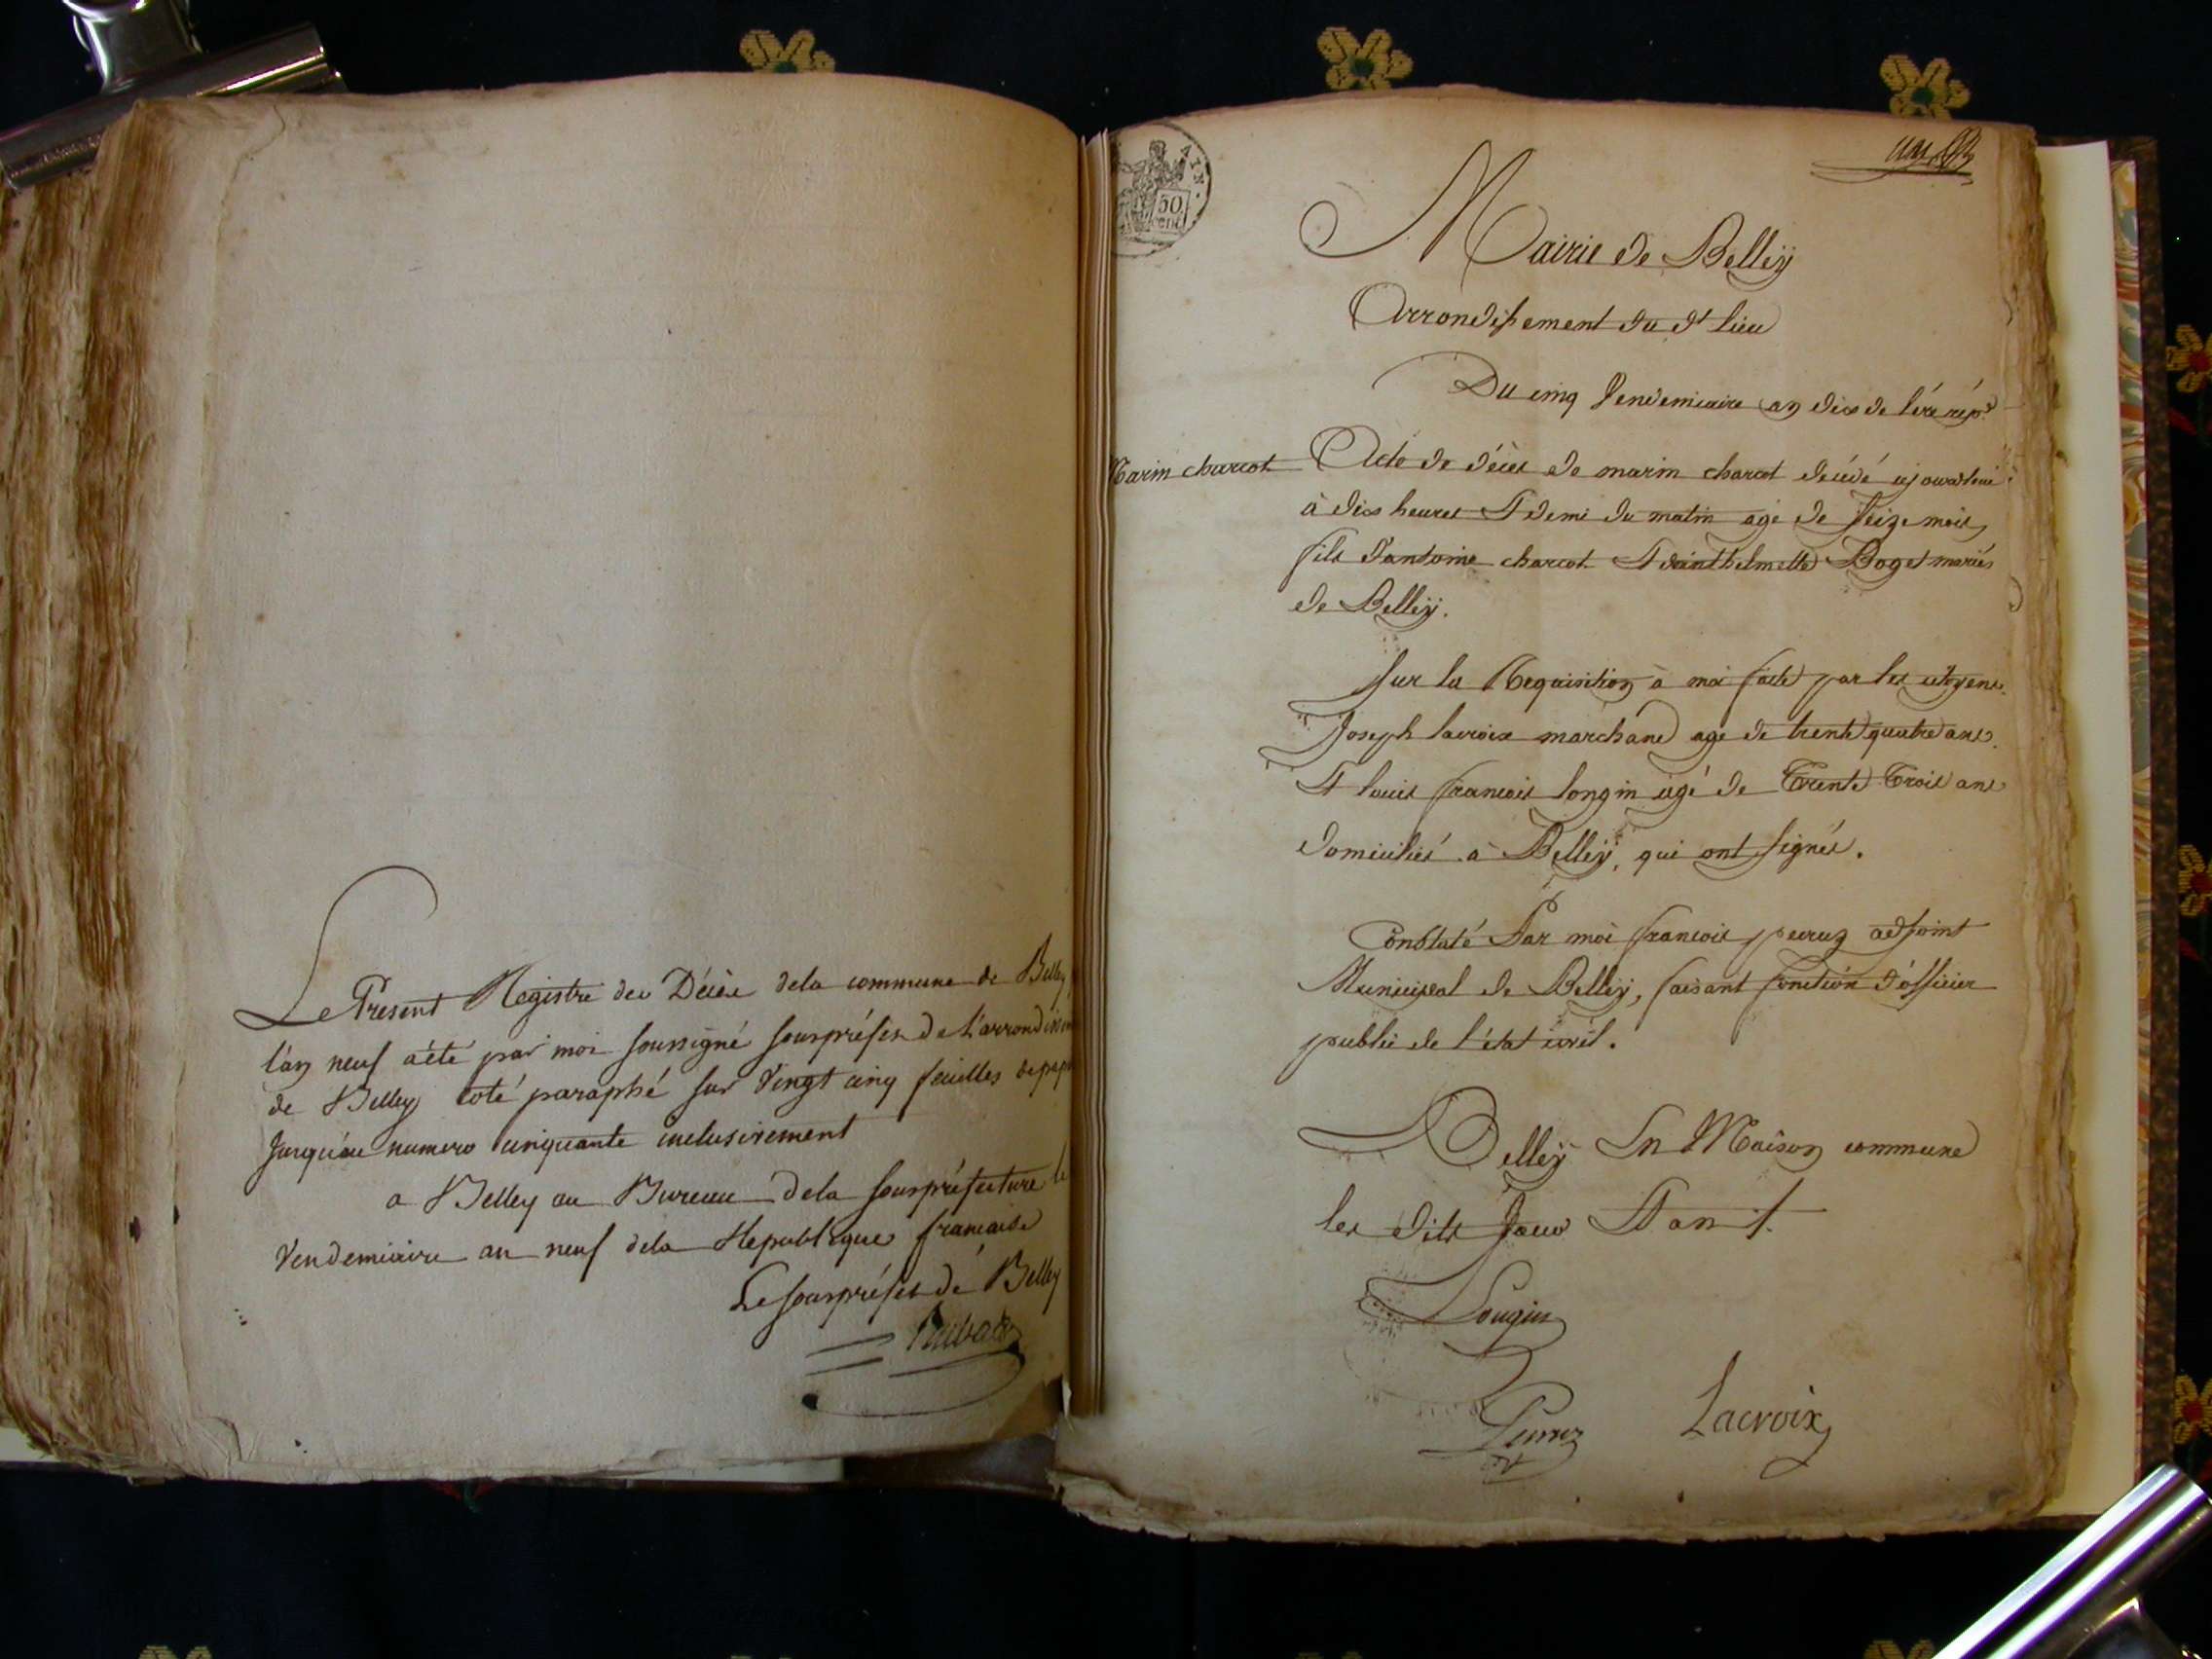 Le Present Registre des Décès dela commune de Belley
l'an neuf a été par moi soussigné souspréfet de l'arrondissem
de Belley coté paraphé sur vingt cinq feuilles de pap
jusqu'au numero cinquante inclusivement
a Belley au Bureau dela souspréfecture le
Vendemiaire an neuf dela Republique francaise
Le souspréfet de Belley
AIN.
50
cent
un
Mairie de Belleÿ
Arrondissement du dt lieu
Du cinq Vendemiaire an dix de l'ére rép.
Marin charcot
Acte de décès de marin charcot décédé ajourd'hui
à dix heures & demi du matin agé de seize mois
fils d'antoine charcot & d'anthelmette Boget mariés
de Belleÿ.
sur la Requisition à moi faite par les citoyens
Joseph lacroix marchand agé de trente quatre ans
& louis francois longin agé de Trente Trois ans
domiciliés à Belleÿ, qui ont signés.
Constaté Par moi francois peruz adjoint
Municipal de Belleÿ, faisant fonction d'officier
public de l'état civil.
Belleÿ En Maison commune
les dits Jour & an
Longin
Peruz
Lacroix